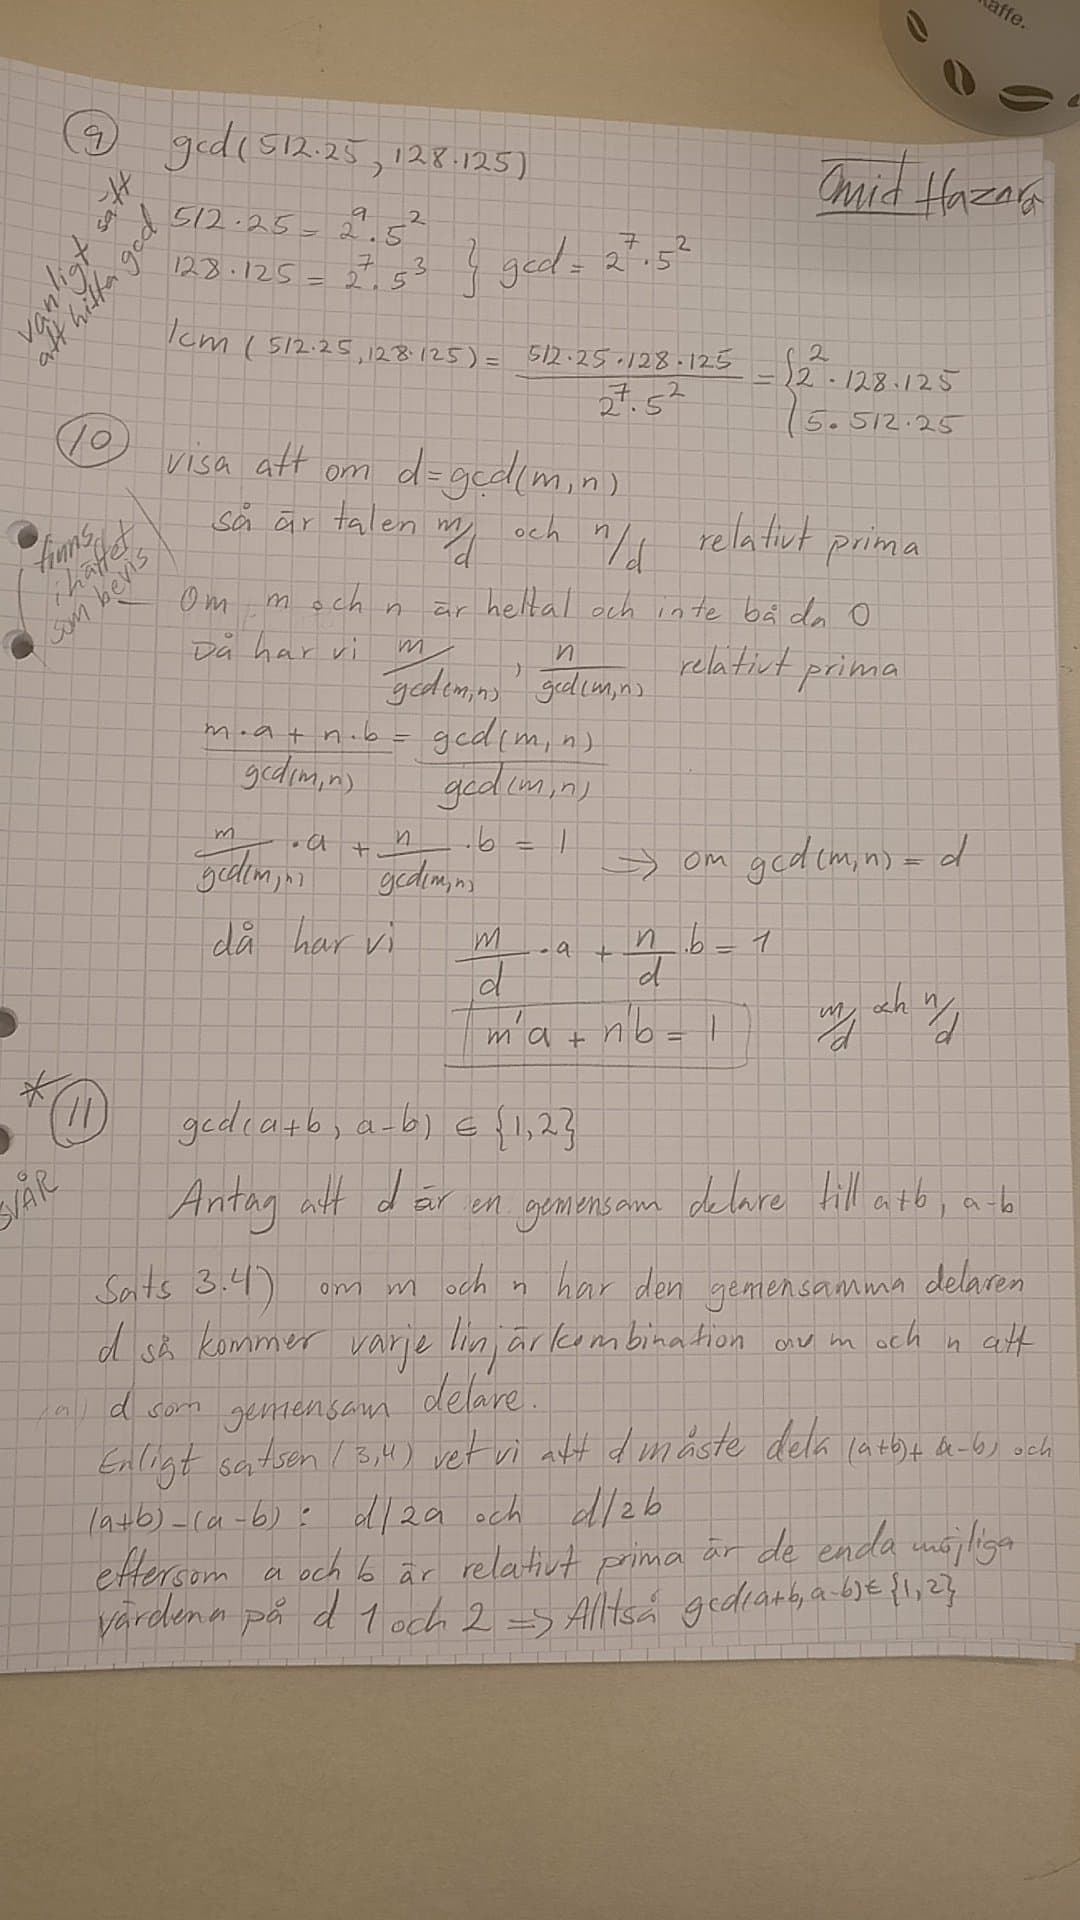 kaffe.
Omid Hazara
9 gcd(512·25, 128·125)
vanligt sätt
att hitta gcd
512·25 = 2⁹·5²
128·125 = 2⁷·5³ } gcd = 2⁷·5²
lcm (512·25, 128·125) = 512·25·128·125 / 2⁷·5² = { 2²·128·125
5·512·25
10 visa att om d=gcd(m,n)
så är talen m/d och n/d relativt prima
finns
i häftet
som bevis
Om m och n är heltal och inte båda 0
Då har vi m/gcd(m,n), n/gcd(m,n) relativt prima
m·a + n·b / gcd(m,n) = gcd(m,n) / gcd(m,n)
m/gcd(m,n) ·a + n/gcd(m,n) ·b = 1 => om gcd(m,n) = d
då har vi m/d ·a + n/d ·b = 1
m'a + n'b = 1 m/d och n/d
* 11 gcd(a+b, a-b) ∈ {1,2}
SVÅR
Antag att d är en gemensam delare till a+b, a-b
Sats 3.4) om m och n har den gemensamma delaren
d så kommer varje linjärkombination av m och n att
d som gemensam delare.
Enligt satsen (3,4) vet vi att d måste dela (a+b)+(a-b) och
(a+b)-(a-b): d/2a och d/2b
eftersom a och b är relativt prima är de enda möjliga
värdena på d 1 och 2 => Alltså gcd(a+b, a-b) ∈ {1,2}